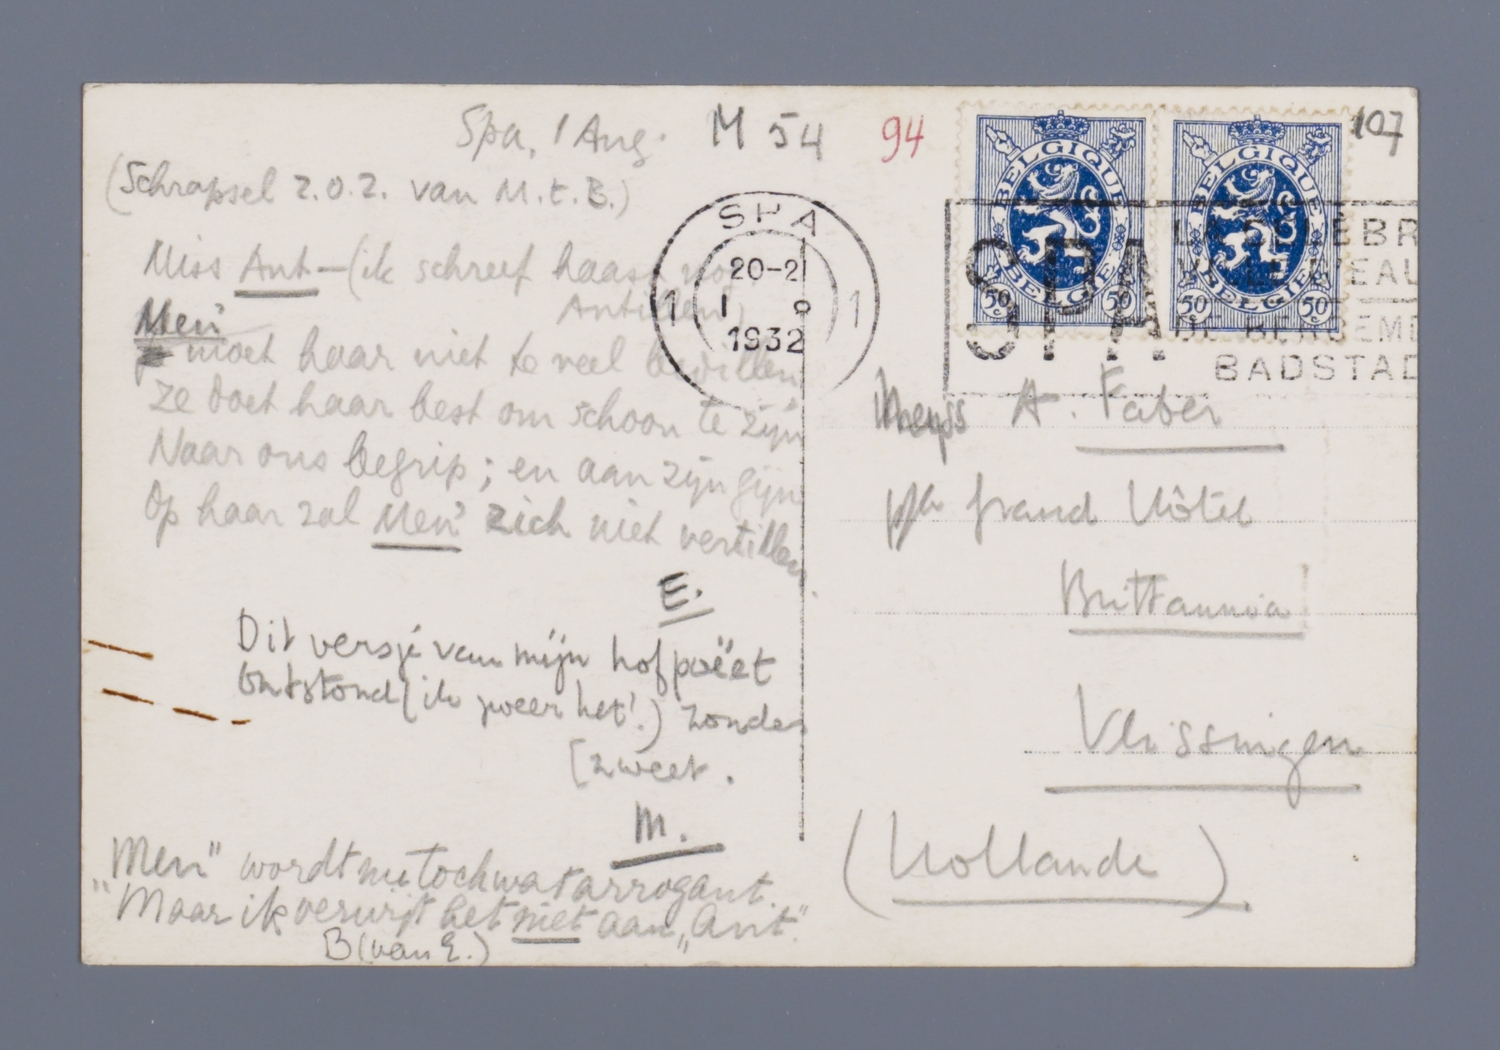 Spa, 1 Aug. M 54 94 107
(Schrapsel z.o.z. van M.t.B.)
Miss Ant — (ik schreef haast
Antillen)
Men
moet haar niet te veel bedillen
Ze doet haar best om schoon te zijn
Naar ons begrip; en aan zijn gijn
Op haar zal Men zich niet vertillen.
E.
Dit versje van mijn hofpoëet
Ontstond (ik zweer het!) zonder
[zweet.
M.
"Men" wordt nu toch wat arrogant.
"Maar ik verwijt het niet aan „Ant".
B (van E.)
SPA
20-21
1 1
1932
BELGIQUE
BELGIË
50c 50c
BELGIQUE
BELGIË
50c 50c
SPA
BADSTAD
A. Faber
Grand Hôtel
Brittannia
Vlissingen
(Hollande)